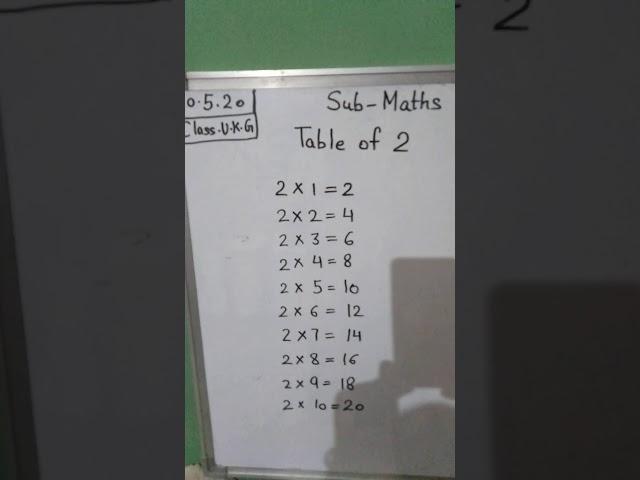 0.5.20
Class.U.K.G
Sub-Maths
Table of 2
2 × 1 = 2
2 × 2 = 4
2 × 3 = 6
2 × 4 = 8
2 × 5 = 10
2 × 6 = 12
2 × 7 = 14
2 × 8 = 16
2 × 9 = 18
2 × 10 = 20